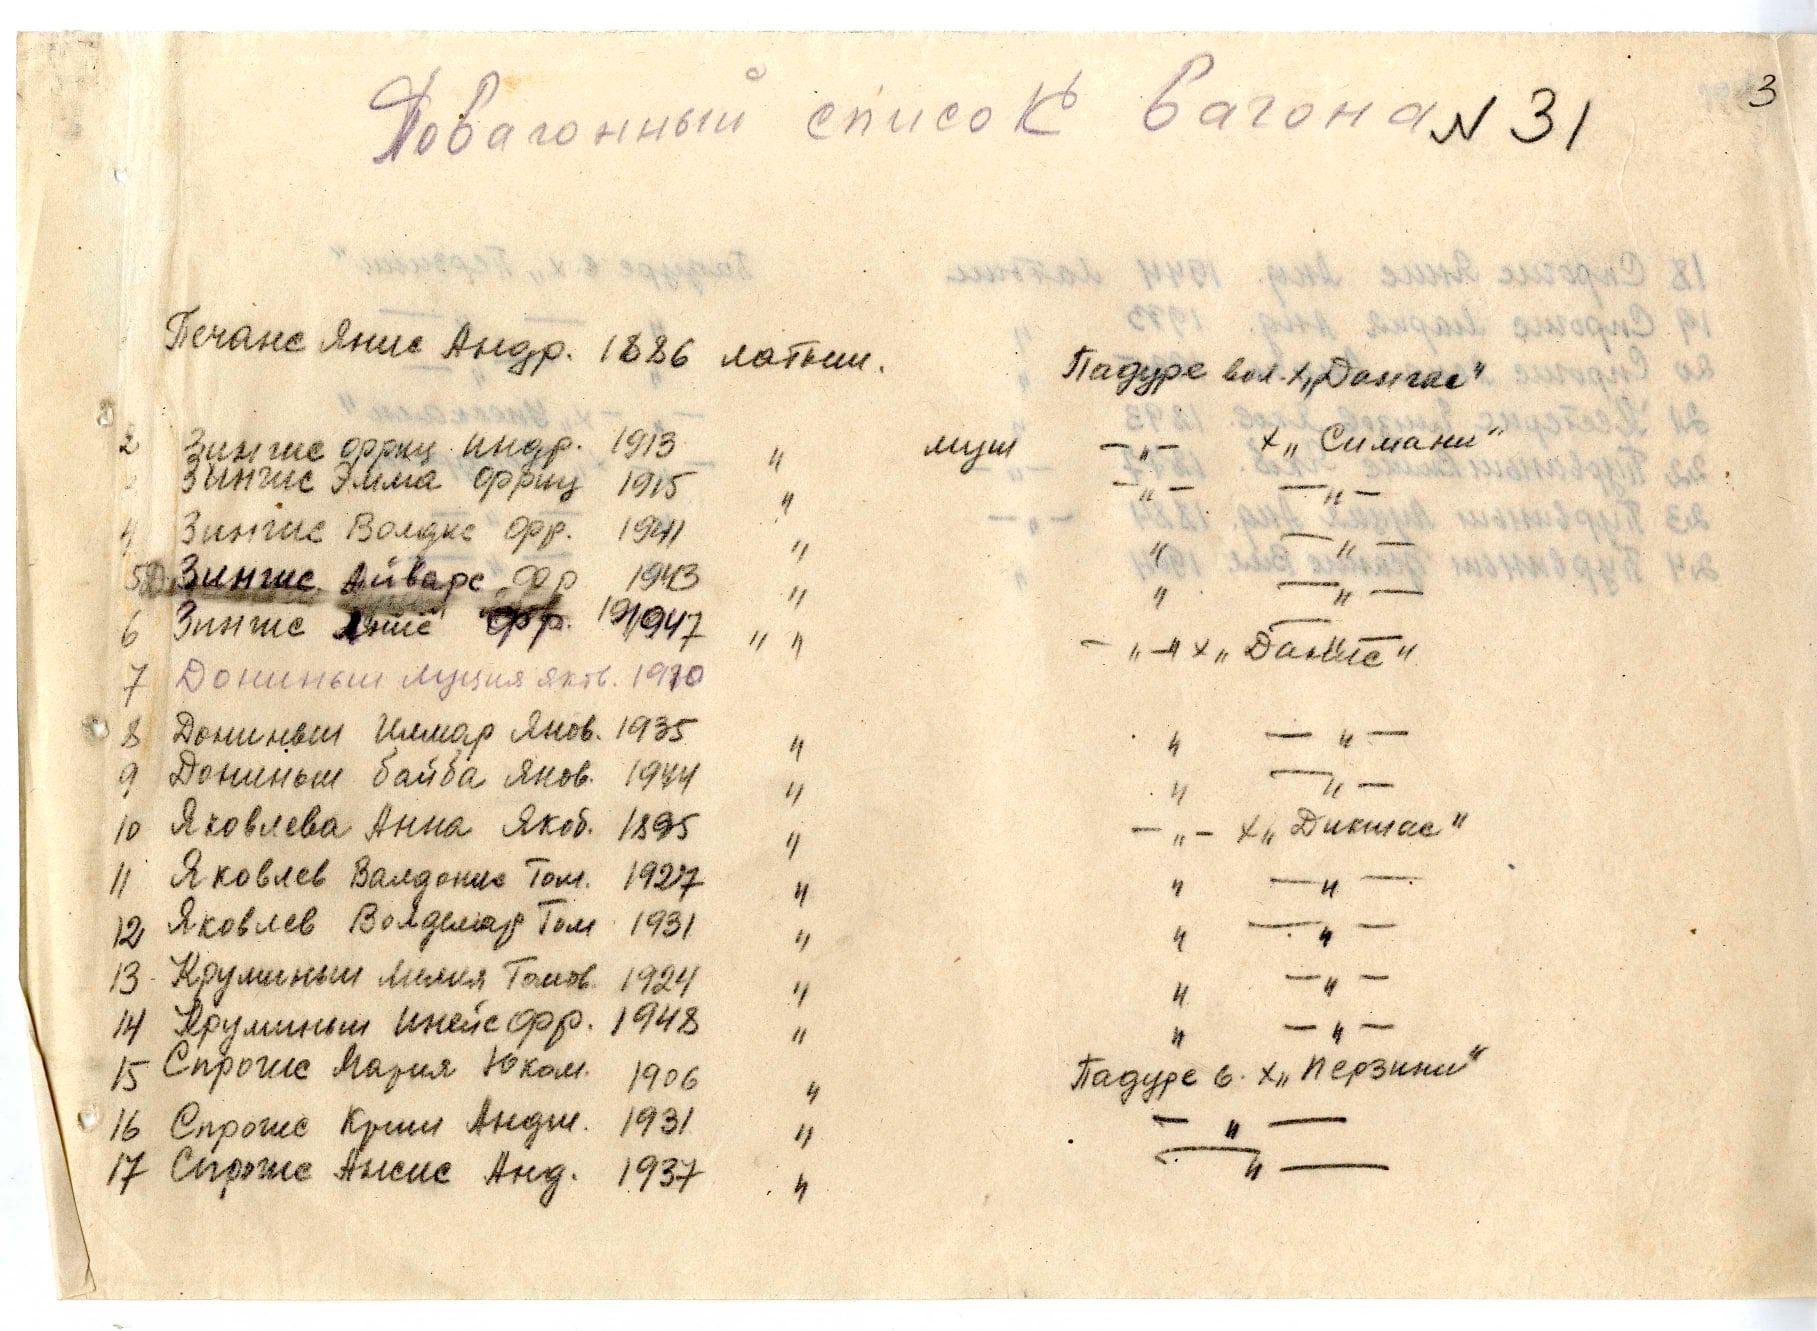 3
Повагонный список вагона N 31
Печанс Янис Андр. 1886 латыш. Падуре вол. х. „Дангас"
2 Зингис Фриц Индр. 1913 " муж — " — х „Симани"
Зингис Эмма Фриц 1915 " — " — — " —
4 Зингис Волдис Фр. 1941 " " — " —
5 Зингис Айварс Фр 1943 " " — " —
6 Зингис Янис Фр. 1947 " " — " — " х „Данис"
7 Дониньш Луция Яков. 1910
8 Дониньш Илмар Янов. 1935 " " — " —
9 Дониньш Байба Янов. 1944 " " — " —
10 Яковлева Анна Якоб. 1895 " — " — х „Дикшас"
11 Яковлев Валдонис Том. 1927 " " — " —
12 Яковлев Волдемар Том 1931 " " — " —
13 Круминьш Милия Томов. 1924 " " — " —
14 Круминьш Инейс Фр. 1948 " " — " —
15 Спрогис Мария Юком. 1906 " Падуре в. х „Перзини"
16 Спрогис Криш Андш. 1931 " — " —
17 Спрогис Ансис Анд. 1937 " — " —